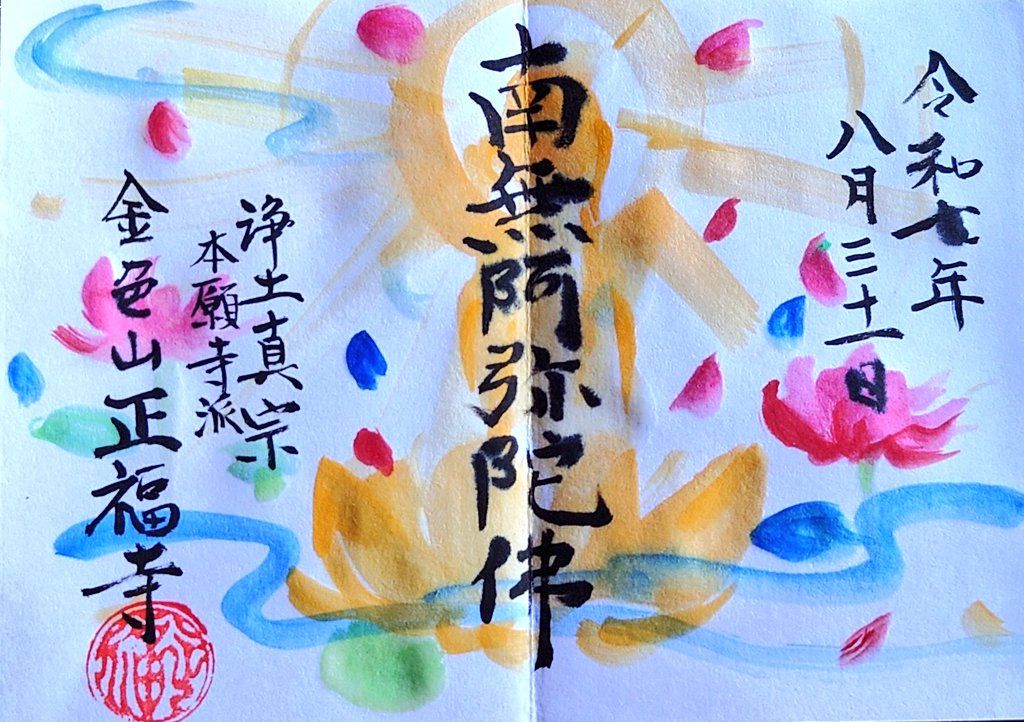 令和七年
八月三十一日
南無阿弥陀佛
浄土真宗
本願寺派
金色山正福寺